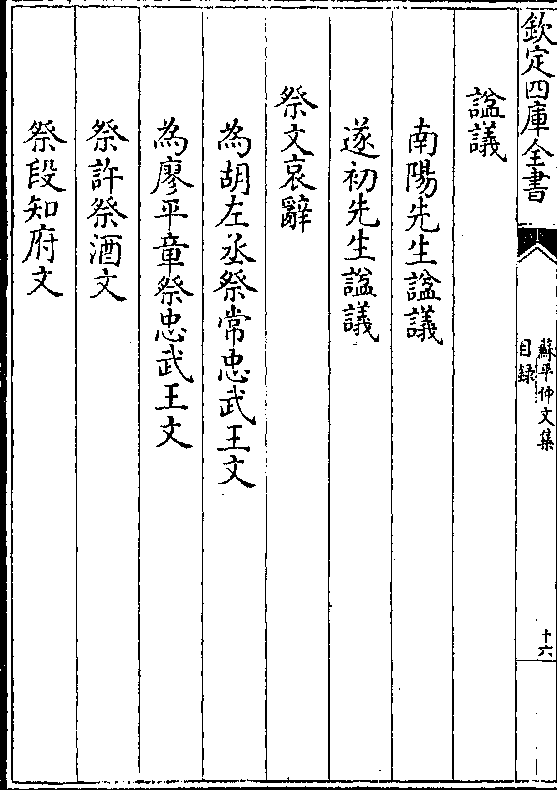 欽定四庫全書
蘇平仲文集
目録
十六
諡議
南陽先生諡議
遂初先生諡議
祭文哀辭
為胡左丞祭常忠武王文
為廖平章祭忠武王文
祭許祭酒文
祭段知府文